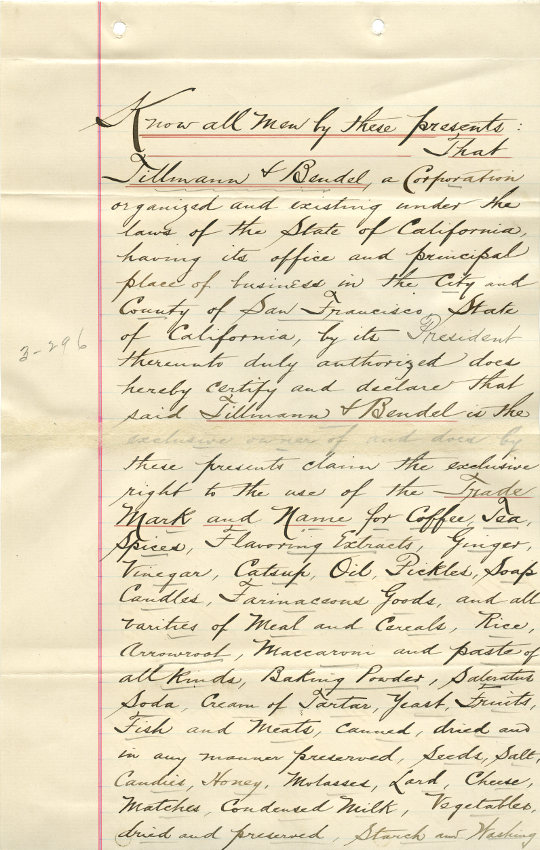 Know all Men by these presents:
That
Tillmann & Bendel, a Corporation
organized and existing under the
laws of the State of California,
having its office and principal
place of business in the City and
County of San Francisco, State
of California, by its President
3-296
thereunto duly authorized does
hereby certify and declare that
said Tillmann & Bendel is the
exclusive owner of and does by
these presents claim the exclusive
right to the use of the Trade
Mark and Name for Coffee, Tea,
Spices, Flavoring Extracts, Ginger,
Vinegar, Catsup, Oil, Pickles, Soap
Candles, Farinaceous Goods, and all
varities of Meal and Cereals, Rice,
Arrowroot, Maccaroni and paste of
all Kinds, Baking Powder, Saleratus
Soda, Cream of Tartar, Yeast, Fruits,
Fish and Meats, canned, dried and
in any manner preserved, Seeds, Salt,
Candies, Honey, Molasses, Lard, Cheese,
Matches, Condensed Milk, Vegetables,
dried and preserved, Starch and Washing